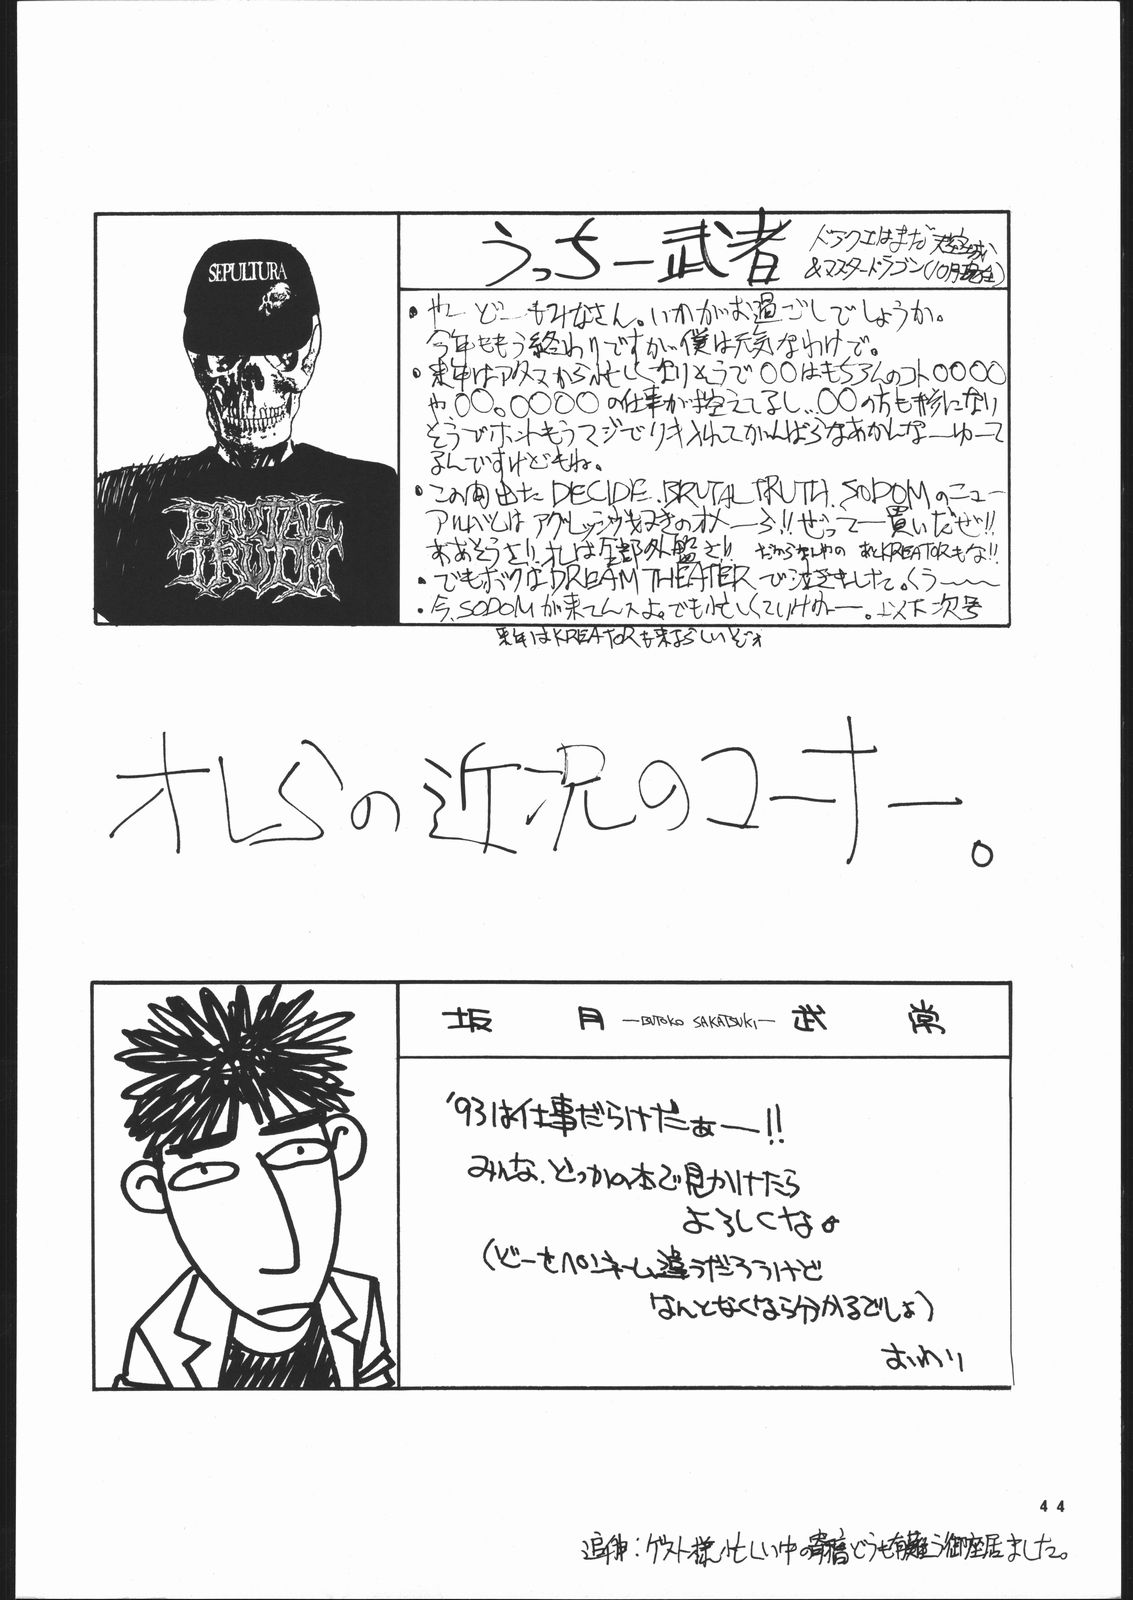 SEPULTURA
BRUTAL
TRUTH
うっちー武者
ドラクエはまだ天空城
&マスタードラゴン(10月現在)
・やーどーもみなさん。いかがお過ごしでしょうか。
今年ももう終わりですが僕は元気なわけで。
・来年はアタマから忙しくなりそうで〇〇はもちろんのコト〇〇〇〇
や、〇〇。〇〇〇〇の仕事が控えてるし、〇〇の方も修になり
そうでホントもうマジでリキ入れてがんばらなあかんなーゆーて
るんですけどもね。
・この間出たDECIDE、BRUTAL TRUTH、SODOMのニュー
アルバムはアグレッシヴ好きのオメーら!!ぜってー買いだぜ!!
ああそうさ!!オレは全部外盤さ!! あとKREATORもな!!
・でもボクはDREAM THEATERで泣きました。くうー〜〜
・今、SODOMが来てんスよ。でも忙しくていけねー。以下次号
来年はKREATORも来るらしいぞォ
オレらの近況のコーナー。
坂月 —BUTOKO SAKATSUKI— 武常
'93は仕事だらけだぁー!!
みんな、どっかの本で見かけたら
よろしくな。
(どーせペンネーム違うだろうけど
なんとなくなら分かるでしょ)
おわり
44
追伸:ゲスト様忙しい中の寄稿どうも有難う御座居ました。